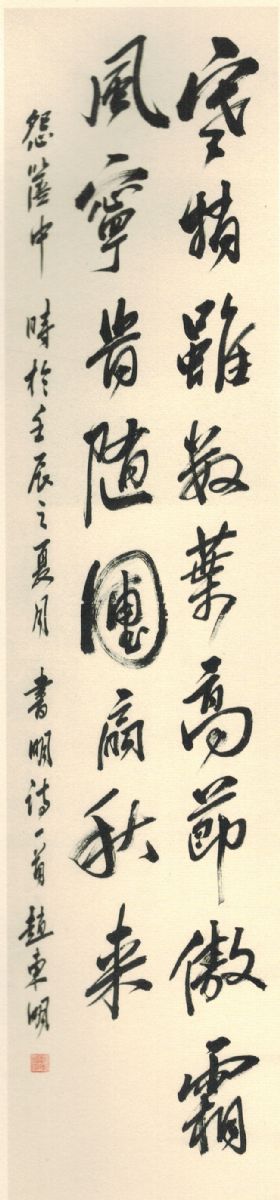 寒梢雖数葉高節傲霜
風寧肯随團扇秋来
怨篋中 時於壬辰之夏月 書明詩一首 趙東明